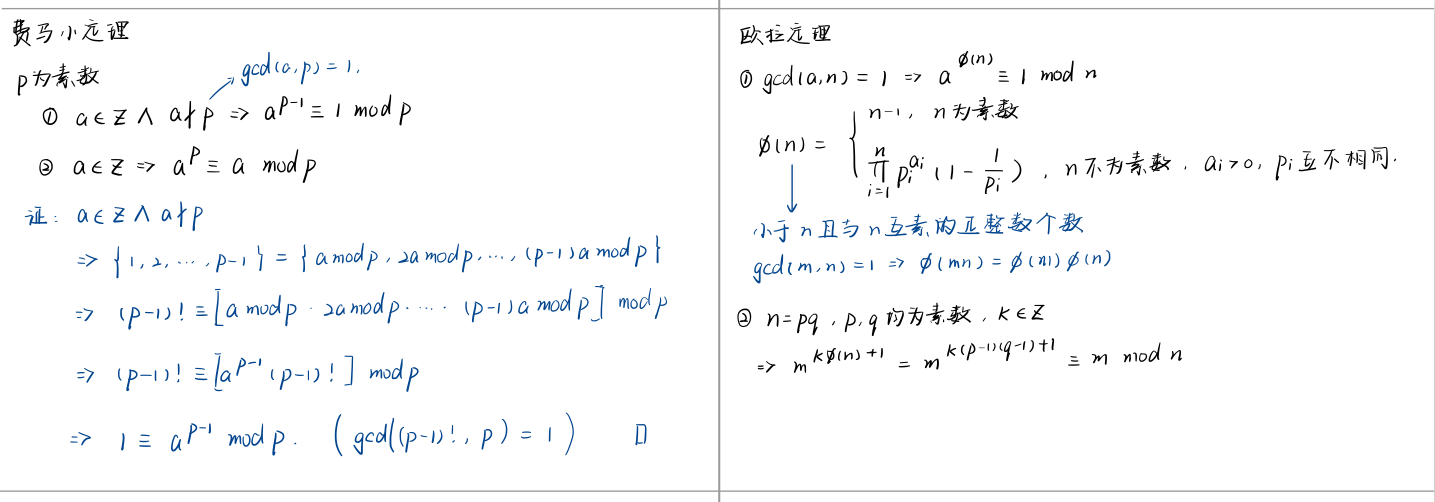 费马小定理
p为素数
gcd(a,p) = 1.
① a∈Z ∧ a∤p ⇒ a^{p-1} ≡ 1 mod p
② a∈Z ⇒ a^p ≡ a mod p
证: a∈Z ∧ a∤p
⇒ {1, 2, ⋯, p-1} = {a mod p, 2a mod p, ⋯, (p-1)a mod p}
⇒ (p-1)! ≡ [a mod p · 2a mod p · ⋯ · (p-1)a mod p] mod p
⇒ (p-1)! ≡ [a^{p-1} (p-1)!] mod p
⇒ 1 ≡ a^{p-1} mod p. (gcd((p-1)!, p) = 1) □
欧拉定理
① gcd(a,n) = 1 ⇒ a^{ø(n)} ≡ 1 mod n
ø(n) = { n-1, n为素数
∏_{i=1}^{n} p_i^{a_i} (1 - 1/p_i), n不为素数, a_i>0, p_i互不相同.
小于n且与n互素的正整数个数
gcd(m,n)=1 ⇒ ø(mn) = ø(m)ø(n)
② n=pq, p,q均为素数, k∈Z
⇒ m^{kø(n)+1} = m^{k(p-1)(q-1)+1} ≡ m mod n